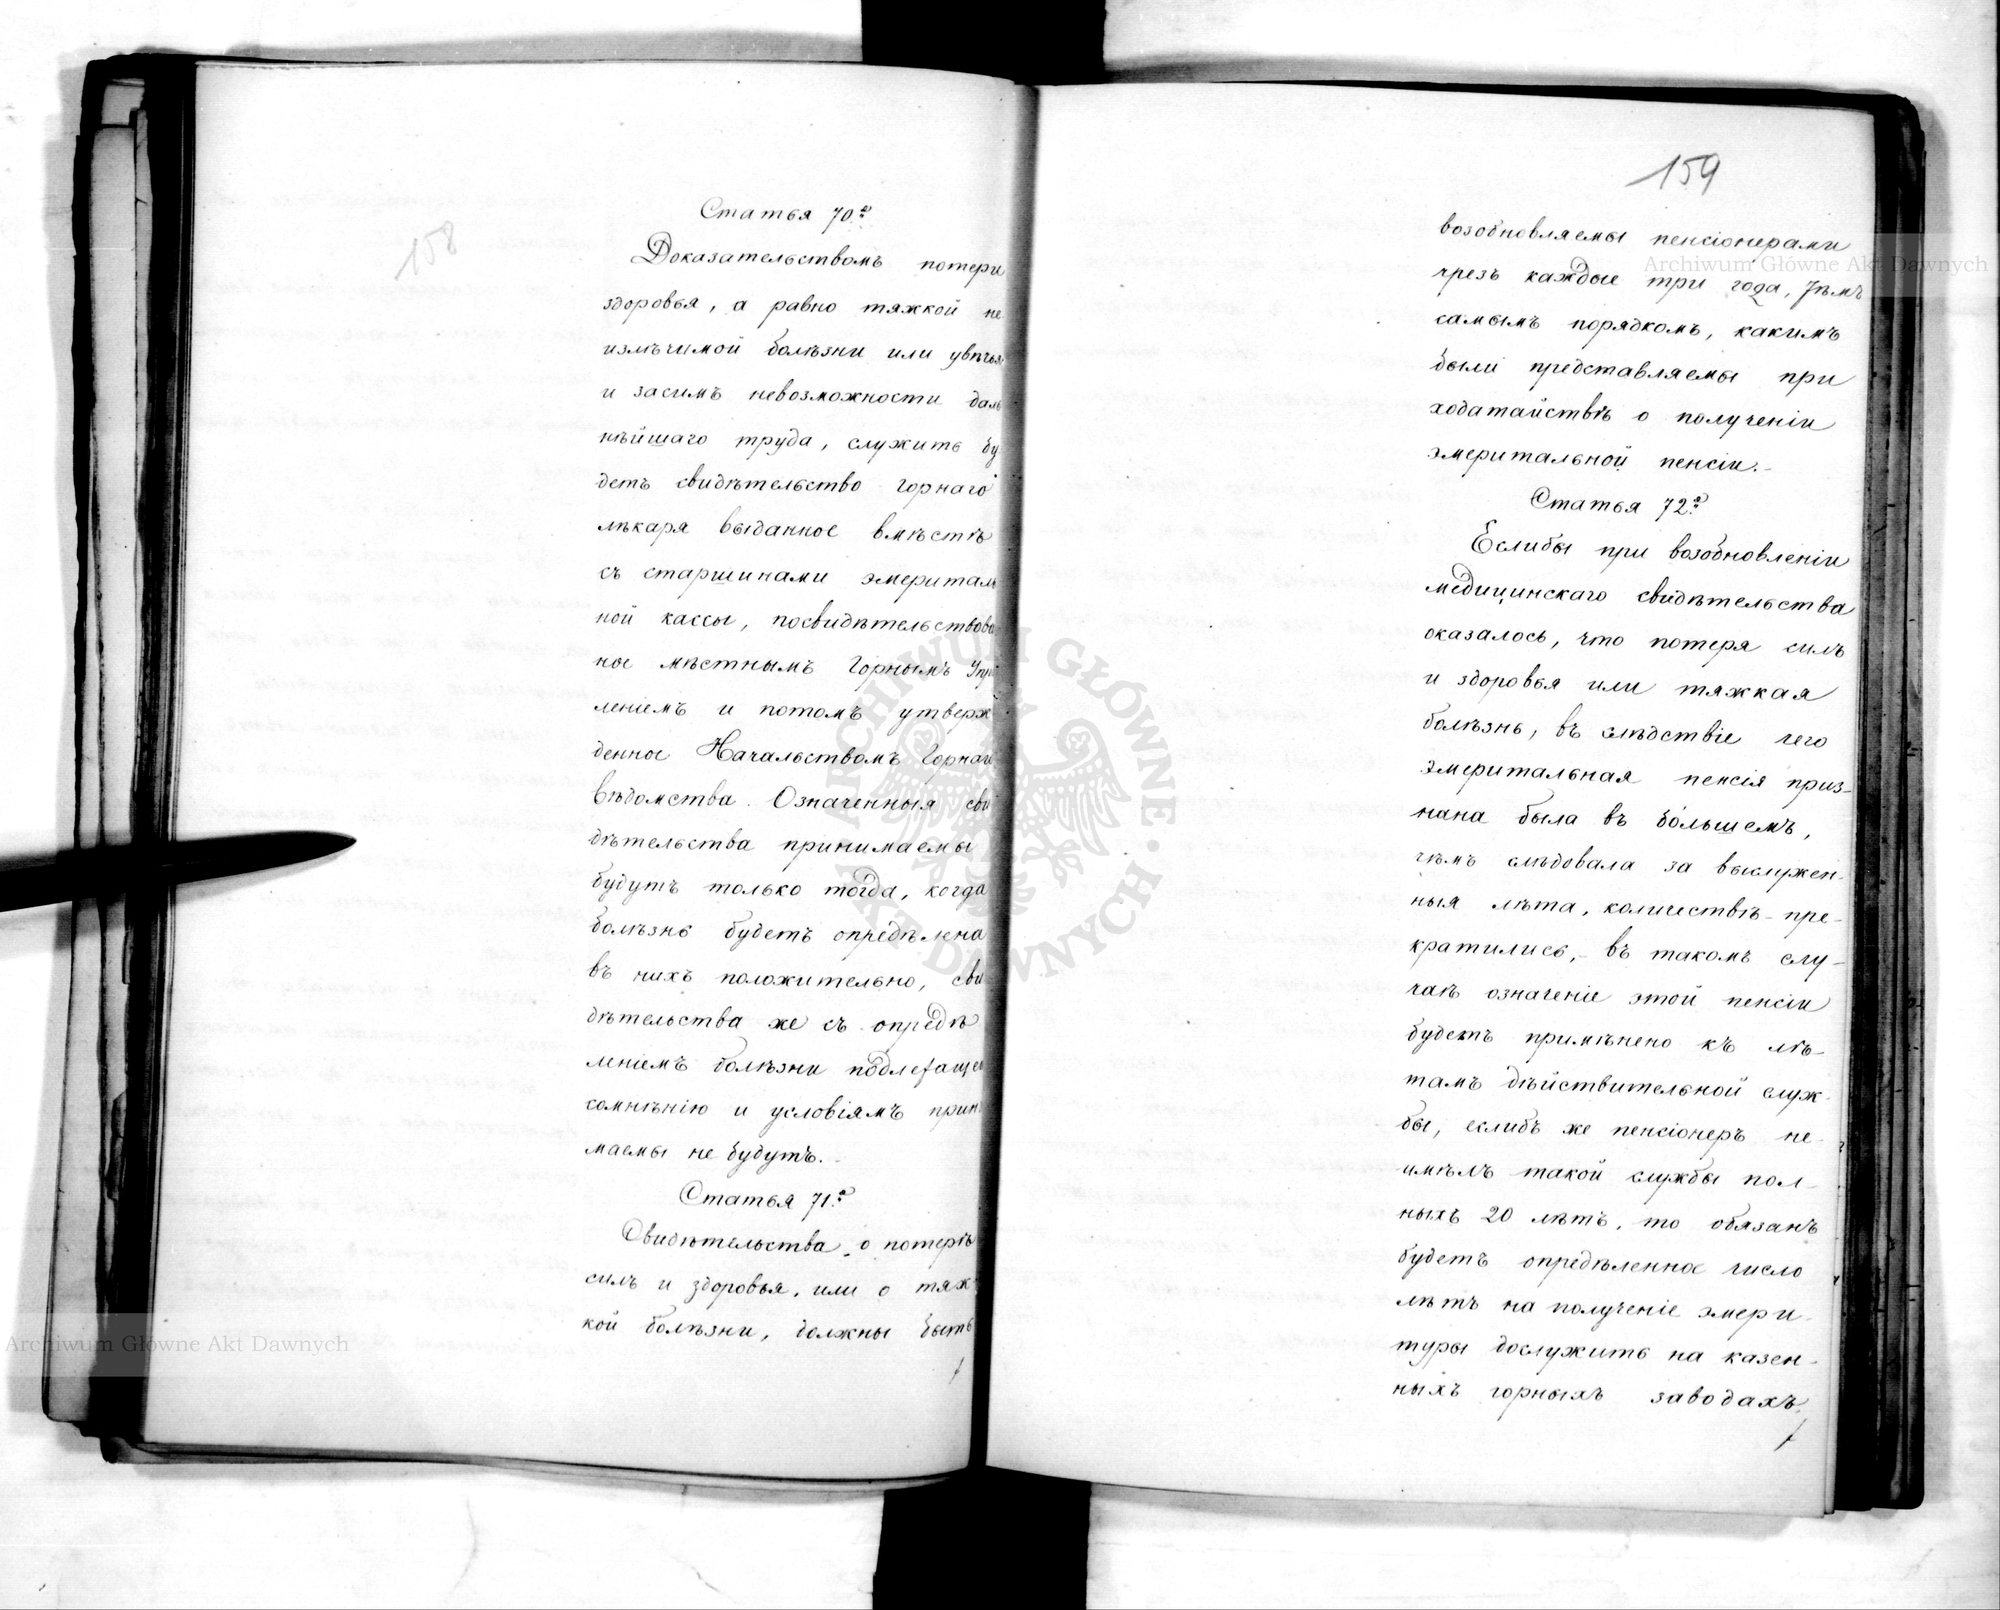 158
Статья 70.я
Доказательствомъ потери
здоровья, а равно тяжкой не
излѣчимой болѣзни или увѣчья
и засимъ невозможности даль
нѣйшаго труда, служить бу
детъ свидѣтельство горнаго
лѣкаря выданное вмѣстѣ
съ старшинами эмериталь
ной кассы, посвидѣтельствова
ное мѣстнымъ Горнымъ
леніемъ и потомъ утверж
денное Начальствомъ Горнаго
вѣдомства. Означенныя сви
дѣтельства принимаемы
будутъ только тогда, когда
болѣзнь будетъ опредѣлена
въ нихъ положительно, сви
дѣтельства же съ опредѣ
леніемъ болѣзни подлежащей
сомнѣнію и условіямъ прини
маемы не будутъ. -
Статья 71.я
Свидѣтельства о потерѣ
силъ и здоровья, или о тяж
кой болѣзни, должны быть
159
возобновляемы пенсіонерами
чрезъ каждые три года, тѣмъ
самымъ порядкомъ, какимъ
были представляемы при
ходатайствѣ о полученіи
эмеритальной пенсіи. -
Статья 72.я
Еслибы при возобновленіи
медицинскаго свидѣтельства
оказалось, что потеря силъ
и здоровья или тяжкая
болѣзнь, въ слѣдствіе чего
эмеритальная пенсія приз-
нана была въ большемъ,
чѣмъ слѣдовала за выслужен-
ныя лѣта, количествѣ - пре-
кратились, - въ такомъ слу-
чаѣ означеніе этой пенсіи
будетъ примѣнено къ лѣ-
тамъ дѣйствительной служ-
бы, еслибъ же пенсіонеръ не-
имѣлъ такой службы пол-
ныхъ 20 лѣтъ, то обязанъ
будетъ опредѣленное число
лѣтъ на полученіе эмери-
туры дослужить на казен-
ныхъ горныхъ заводахъ.
Archiwum Główne Akt Dawnych
ARCHIWUM GŁÓWNE AKT DAWNYCH
Archiwum Główne Akt Dawnych